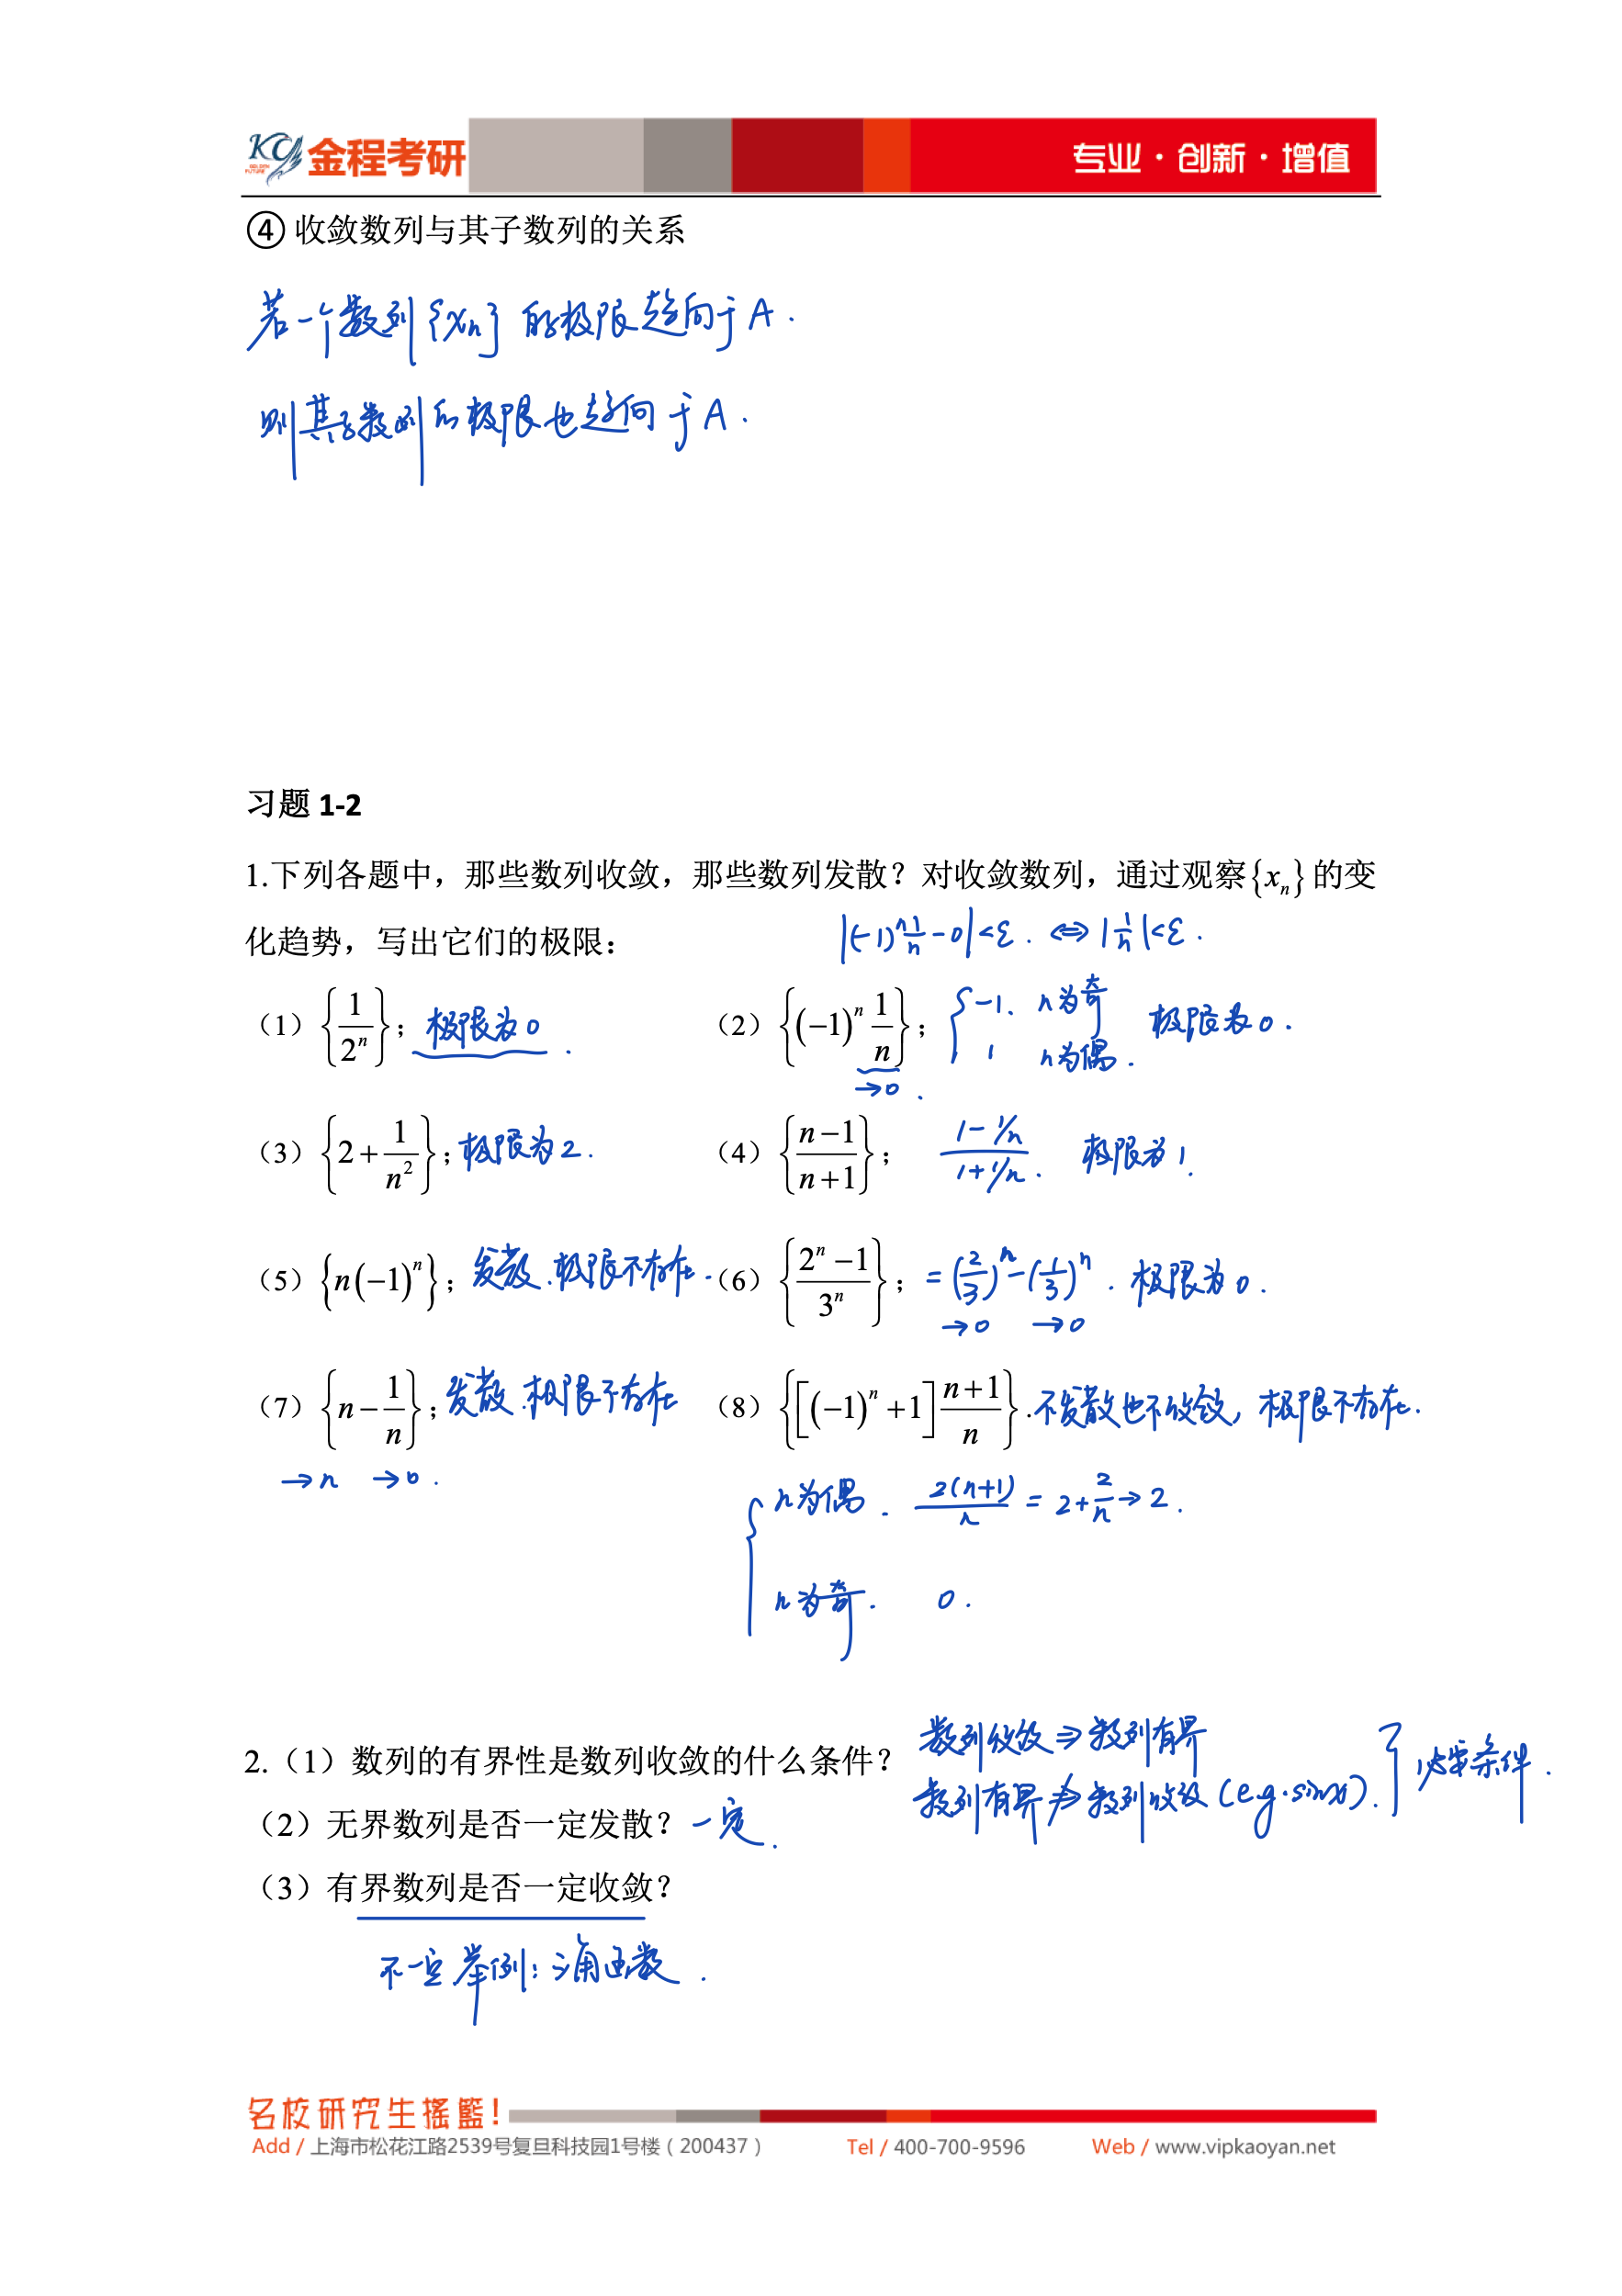 KCY GOLDEN FUTURE 金程考研 专业·创新·增值
④ 收敛数列与其子数列的关系
若一个数列{xₙ}的极限趋向于A.
则其子数列的极限也趋向于A.
习题 1-2
1.下列各题中，那些数列收敛，那些数列发散？对收敛数列，通过观察{xₙ}的变
化趋势，写出它们的极限： |(-1)ⁿ 1/n - 0|<ε. ⇔ |1/n|<ε.
（1）{1/2ⁿ}；极限为0. （2）{(−1)ⁿ 1/n}； { -1. n为奇 1 n为偶. 极限为0.
→0.
（3）{2+1/n²}；极限为2. （4）{(n−1)/(n+1)}； (1-1/n)/(1+1/n). 极限为1.
（5）{n(−1)ⁿ}；发散.极限不存在. （6）{(2ⁿ−1)/3ⁿ}； =(2/3)ⁿ-(1/3)ⁿ. 极限为0.
→0 →0
（7）{n−1/n}；发散.极限不存在 （8）{[(−1)ⁿ+1](n+1)/n}.不发散也不收敛，极限不存在.
→n →0.
{ n为偶. 2(n+1)/n = 2+2/n→2.
n为奇. 0.
数列收敛⇒数列有界
2.（1）数列的有界性是数列收敛的什么条件？ } 必要条件.
数列有界⇏数列收敛(e.g.sinx).
（2）无界数列是否一定发散？一定.
（3）有界数列是否一定收敛？
不一定 举例：三角函数.
名校研究生摇篮！
Add / 上海市松花江路2539号复旦科技园1号楼（200437） Tel / 400-700-9596 Web / www.vipkaoyan.net